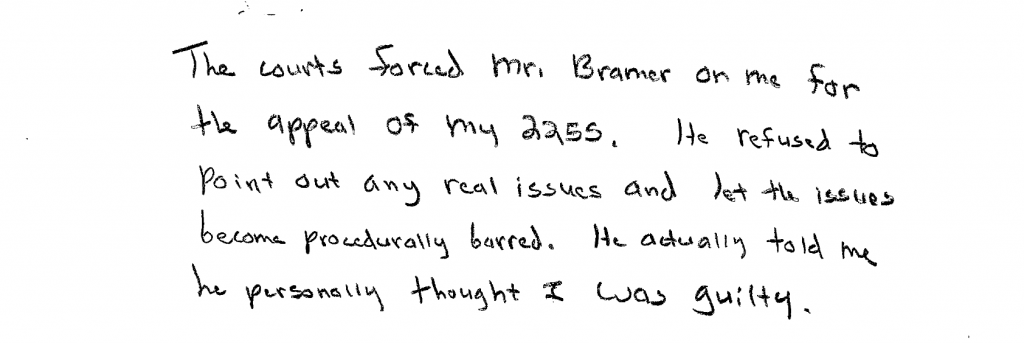 The courts forced Mr. Bramer on me for
the appeal of my 2255. He refused to
Point out any real issues and let the issues
become procedurally barred. He actually told me
he personally thought I was guilty.